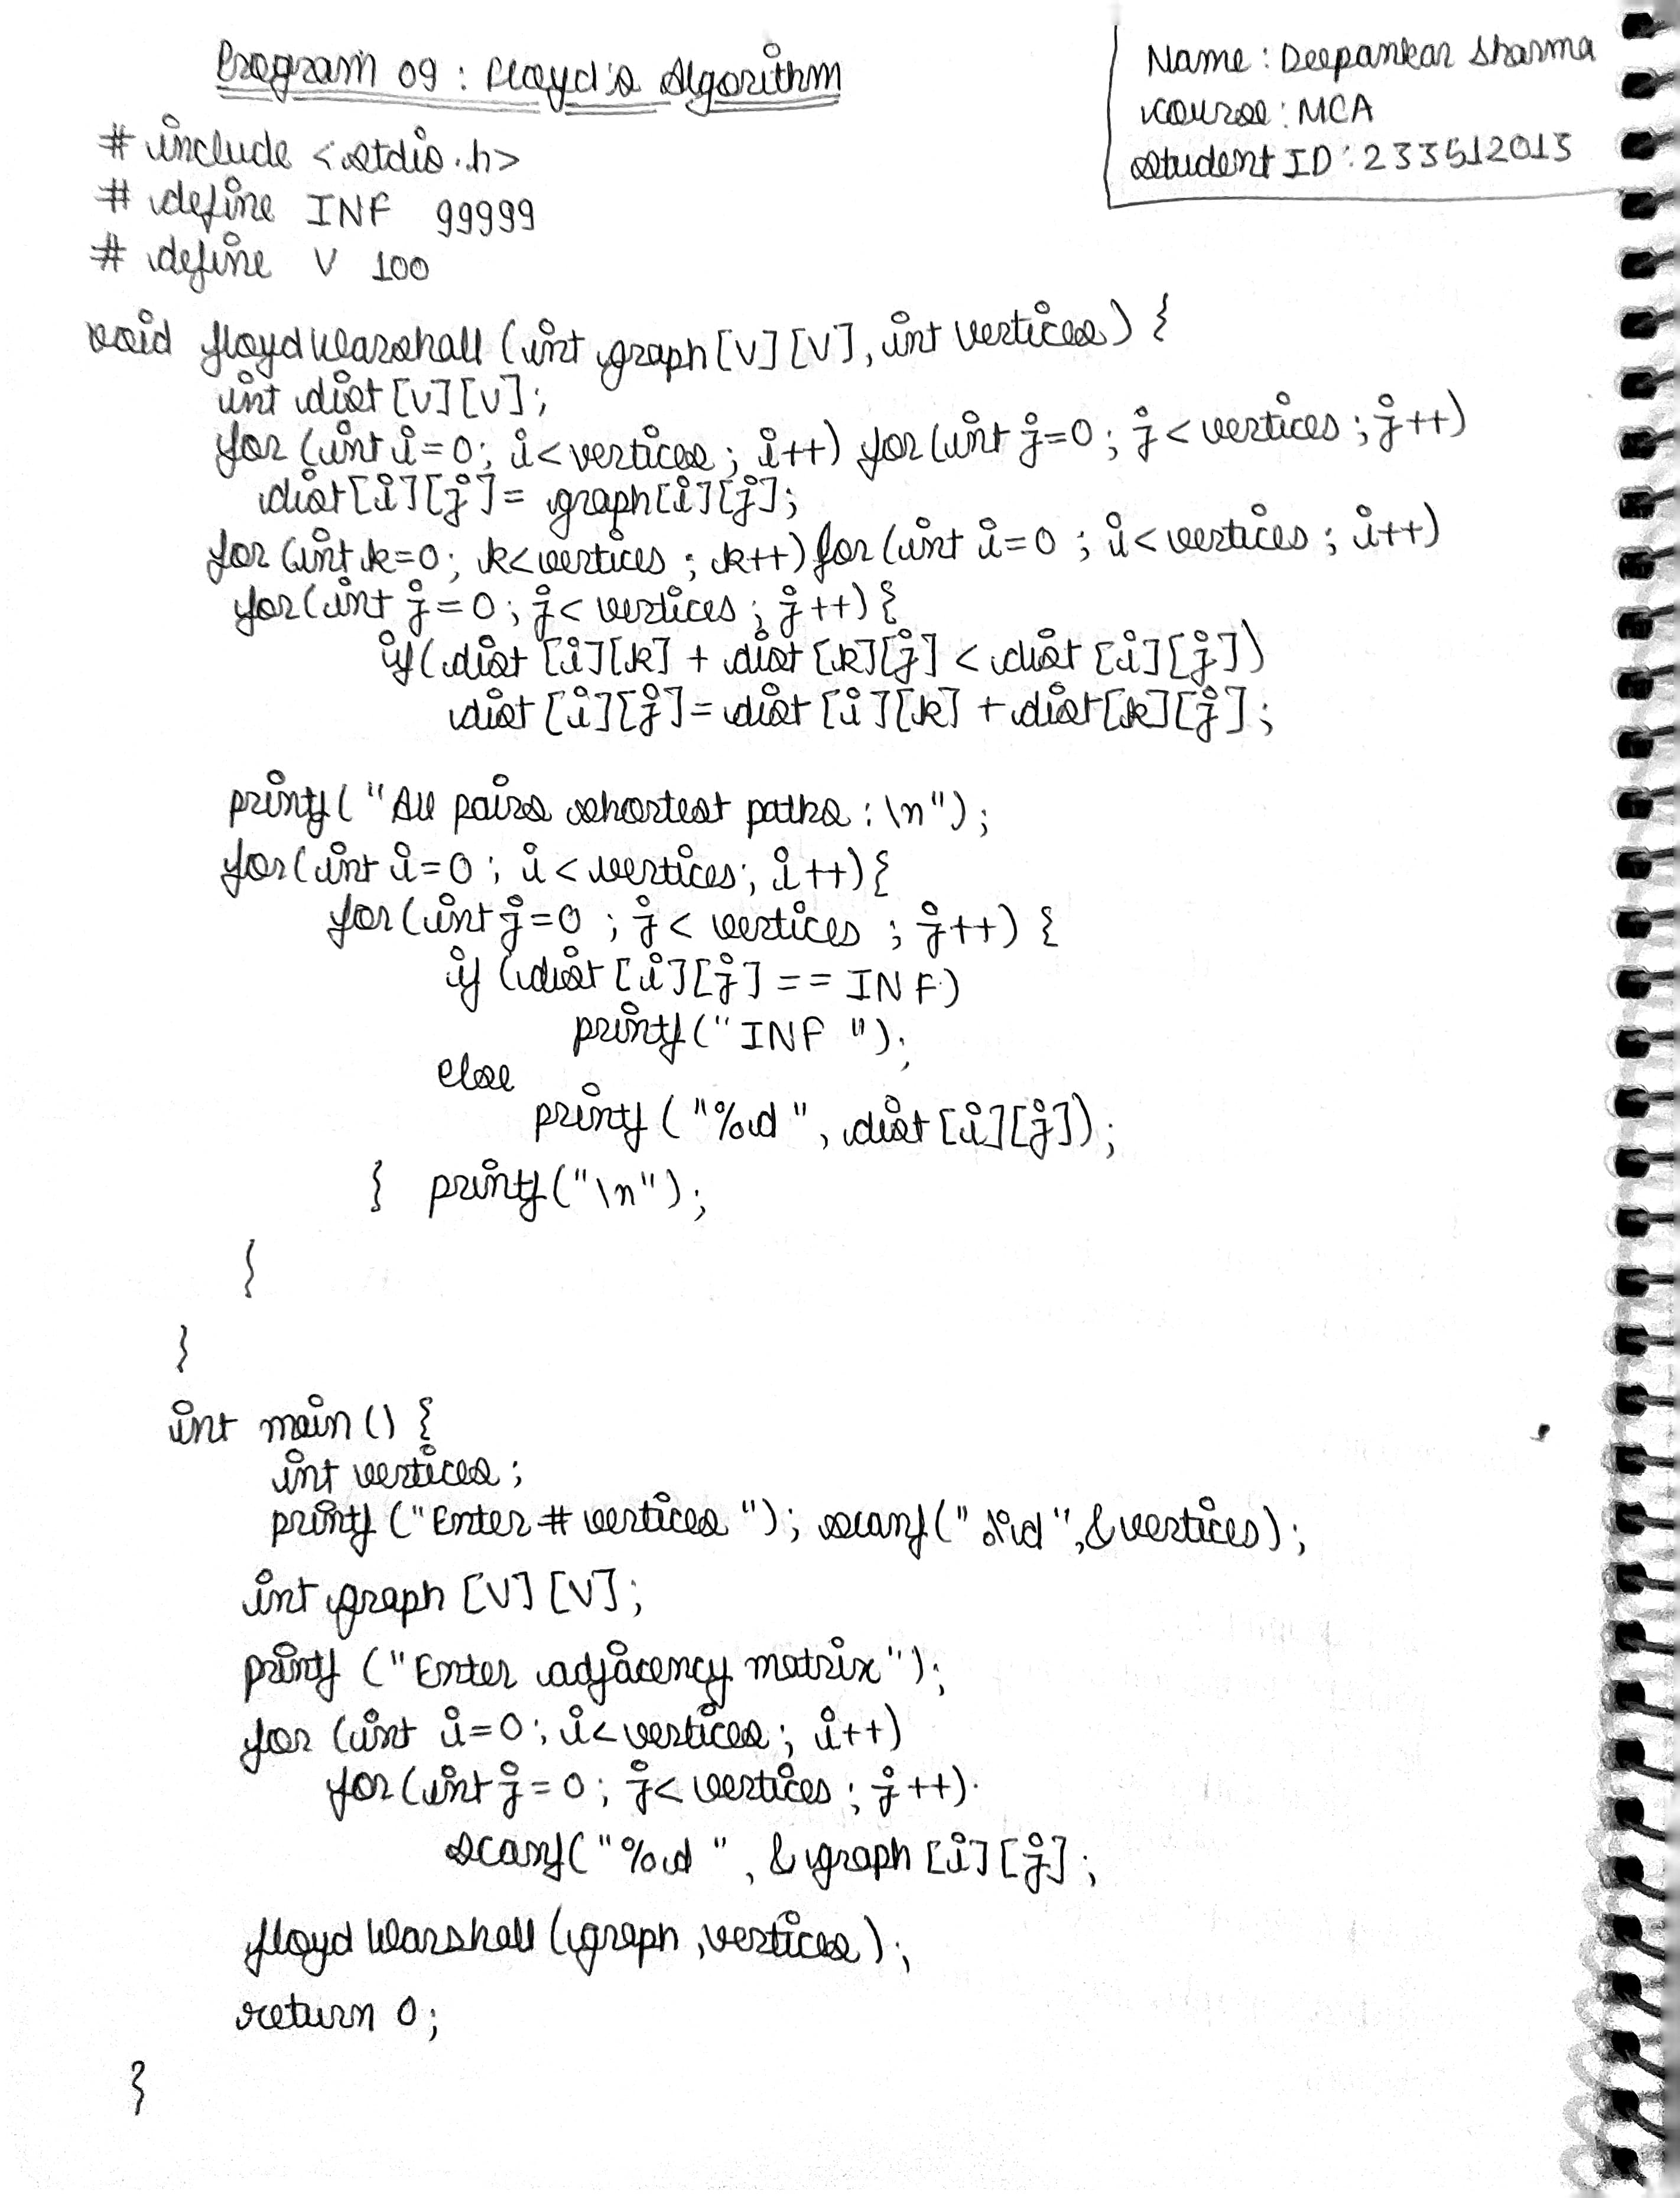 Program 09 : Floyd's Algorithm
Name : Deepankar Sharma
Course : MCA
Student ID : 233512013
# include <stdio.h>
# define INF 99999
# define V 100
void floydWarshall (int graph [V] [V], int vertices) {
int dist [V] [V];
for (int i=0; i<vertices; i++) for (int j=0; j<vertices; j++)
dist[i][j] = graph[i][j];
for (int k=0; k<vertices; k++) for (int i=0; i<vertices; i++)
for (int j=0; j<vertices; j++) {
if (dist [i][k] + dist [k][j] < dist [i][j])
dist [i][j] = dist [i][k] + dist[k][j];
printf ("All pairs shortest paths : \n");
for (int i=0; i<vertices; i++) {
for (int j=0; j< vertices ; j++) {
if (dist [i][j] == INF)
printf ("INF ");
else
printf ("%d ", dist [i][j]);
} printf ("\n");
}
}
int main () {
int vertices ;
printf ("Enter # vertices "); scanf ("%d", &vertices);
int graph [V] [V];
printf ("Enter adjacency matrix");
for (int i=0; i<vertices; i++)
for (int j=0; j< vertices; j++)
scanf ("%d ", &graph [i][j];
floydWarshall (graph, vertices);
return 0;
}